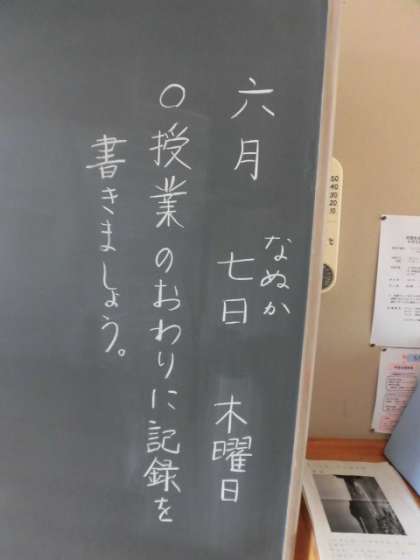 六月 七日 木曜日
なぬか
○授業のおわりに記録を
書きましょう。
50
40
30
20
10
℃